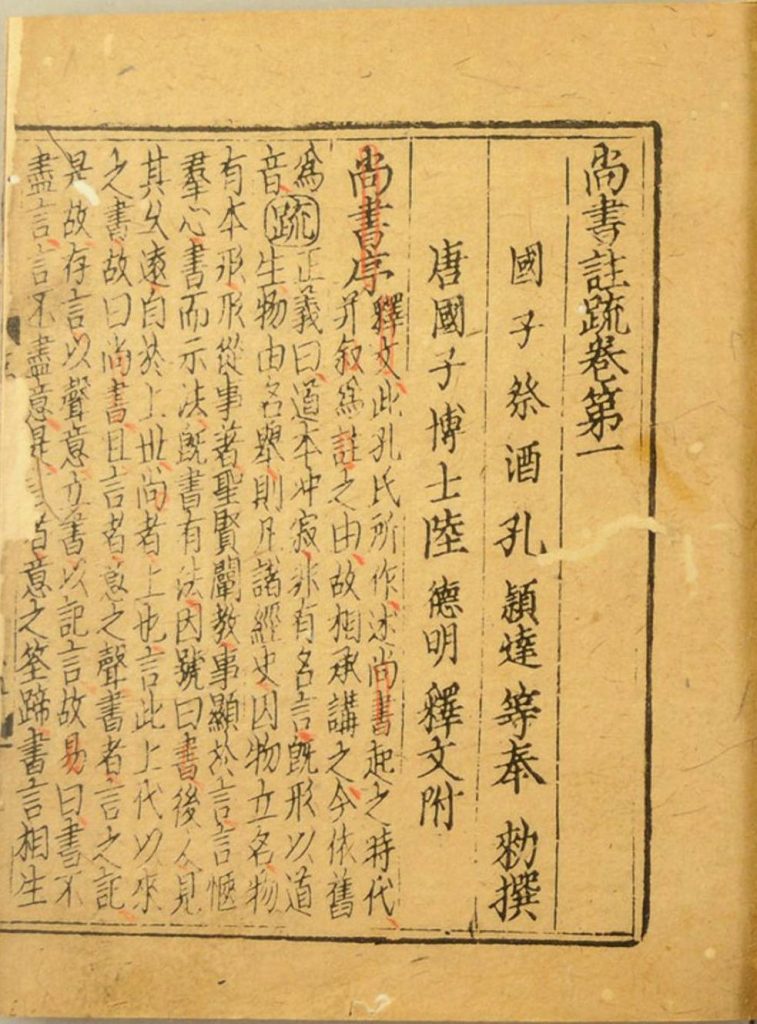 尚書註疏卷第一
國子祭酒孔穎達等奉勑撰
唐國子博士陸德明釋文附
尚書序釋文此孔氏所作述尚書起之時代
并叙為註之由故相承講之今依舊
為音疏正義曰道本冲寂非有名言旣形以道
生物由名舉則凡諸經史因物立名物
有本形形從事著聖賢闡教事顯於言言愜
羣心書而示法旣書有法因號曰書後人見
其久遠自於上世尚者上也言此上代以來
之書故曰尚書且言者意之聲書者言之記
是故存言以聲意立書以記言故易曰書不
盡言言不盡意是者意之筌蹄書言相生